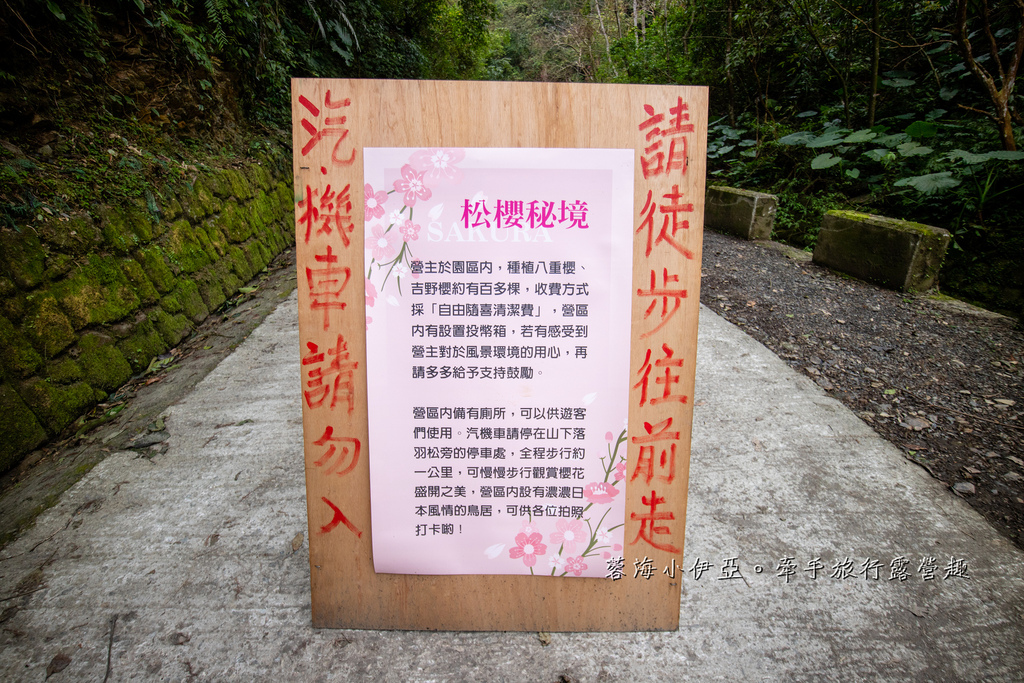 汽、機車請勿入
松櫻秘境
SAKURA
營主於園區內，種植八重櫻、
吉野櫻約有百多棵，收費方式
採「自由隨喜清潔費」，營區
內有設置投幣箱，若有感受到
營主對於風景環境的用心，再
請多多給予支持鼓勵。
營區內備有廁所，可以供遊客
們使用。汽機車請停在山下落
羽松旁的停車處，全程步行約
一公里，可慢慢步行觀賞櫻花
盛開之美，營區內設有濃濃日
本風情的鳥居，可供各位拍照
打卡喲！
請徒步往前走
蓉海小伊亞。牽手旅行露營趣